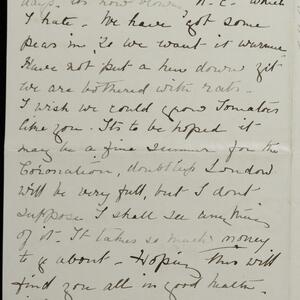 days. Its now blowing N.E. which
I hate. We have got some
peas in, so we want it warmer
Have not put a hen down yit
we are bothered with rats.
I wish we could grow Tomatos
like you. Its to be hoped it
may be a fine summer for the
Coronation, doubtless London
will be very full, but I dont
suppose I shall see anything
of it. It takes so much money
to go about - Hoping this will
find you all in good health.